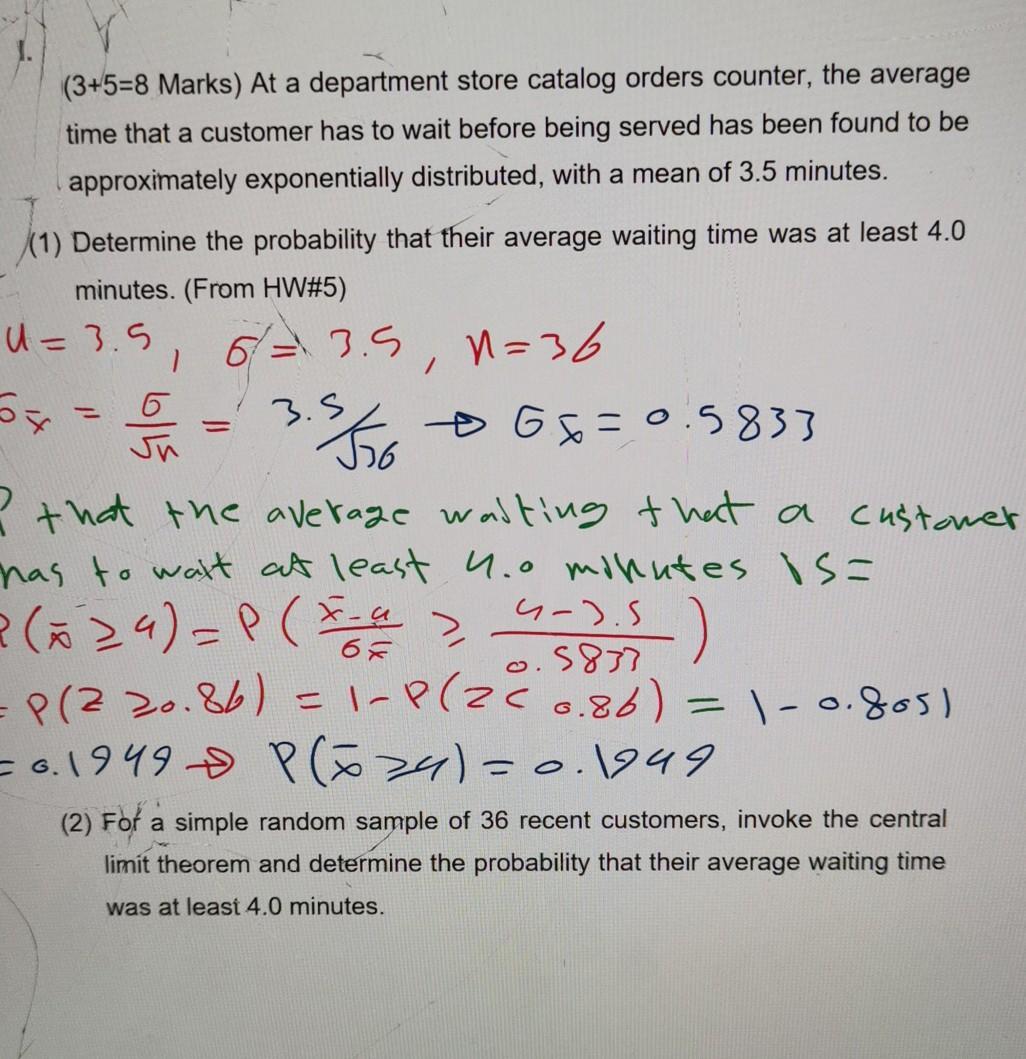 1.
(3+5=8 Marks) At a department store catalog orders counter, the average
time that a customer has to wait before being served has been found to be
approximately exponentially distributed, with a mean of 3.5 minutes.
(1) Determine the probability that their average waiting time was at least 4.0
minutes. (From HW#5)
μ = 3.5, σ = 3.5, n = 36
σx̄ = σ/√n = 3.5/√36 → σx̄ = 0.5833
P that the average waiting that a customer
has to wait at least 4.0 minutes is =
P(x̄ ≥ 4) = P( (x̄-μ)/σx̄ ≥ (4-3.5)/0.5833 )
= P(Z ≥ 0.86) = 1-P(Z < 0.86) = 1-0.8051
= 0.1949 → P(x̄ ≥ 4) = 0.1949
(2) For a simple random sample of 36 recent customers, invoke the central
limit theorem and determine the probability that their average waiting time
was at least 4.0 minutes.